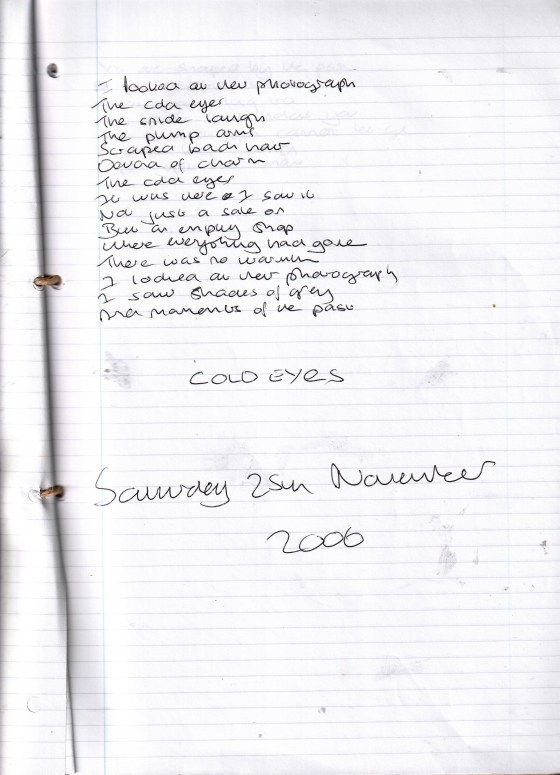 I looked at her photograph
The cold eyes
The snide laugh
The plump arms
Scraped back hair
Devoid of charm
The cold eyes
It was here I saw it
Not just a sale on
But an empty shop
Where everything had gone
There was no warmth
I looked at her photograph
I saw shades of grey
And moments of the past
COLD EYES
Saturday 25th November
2006